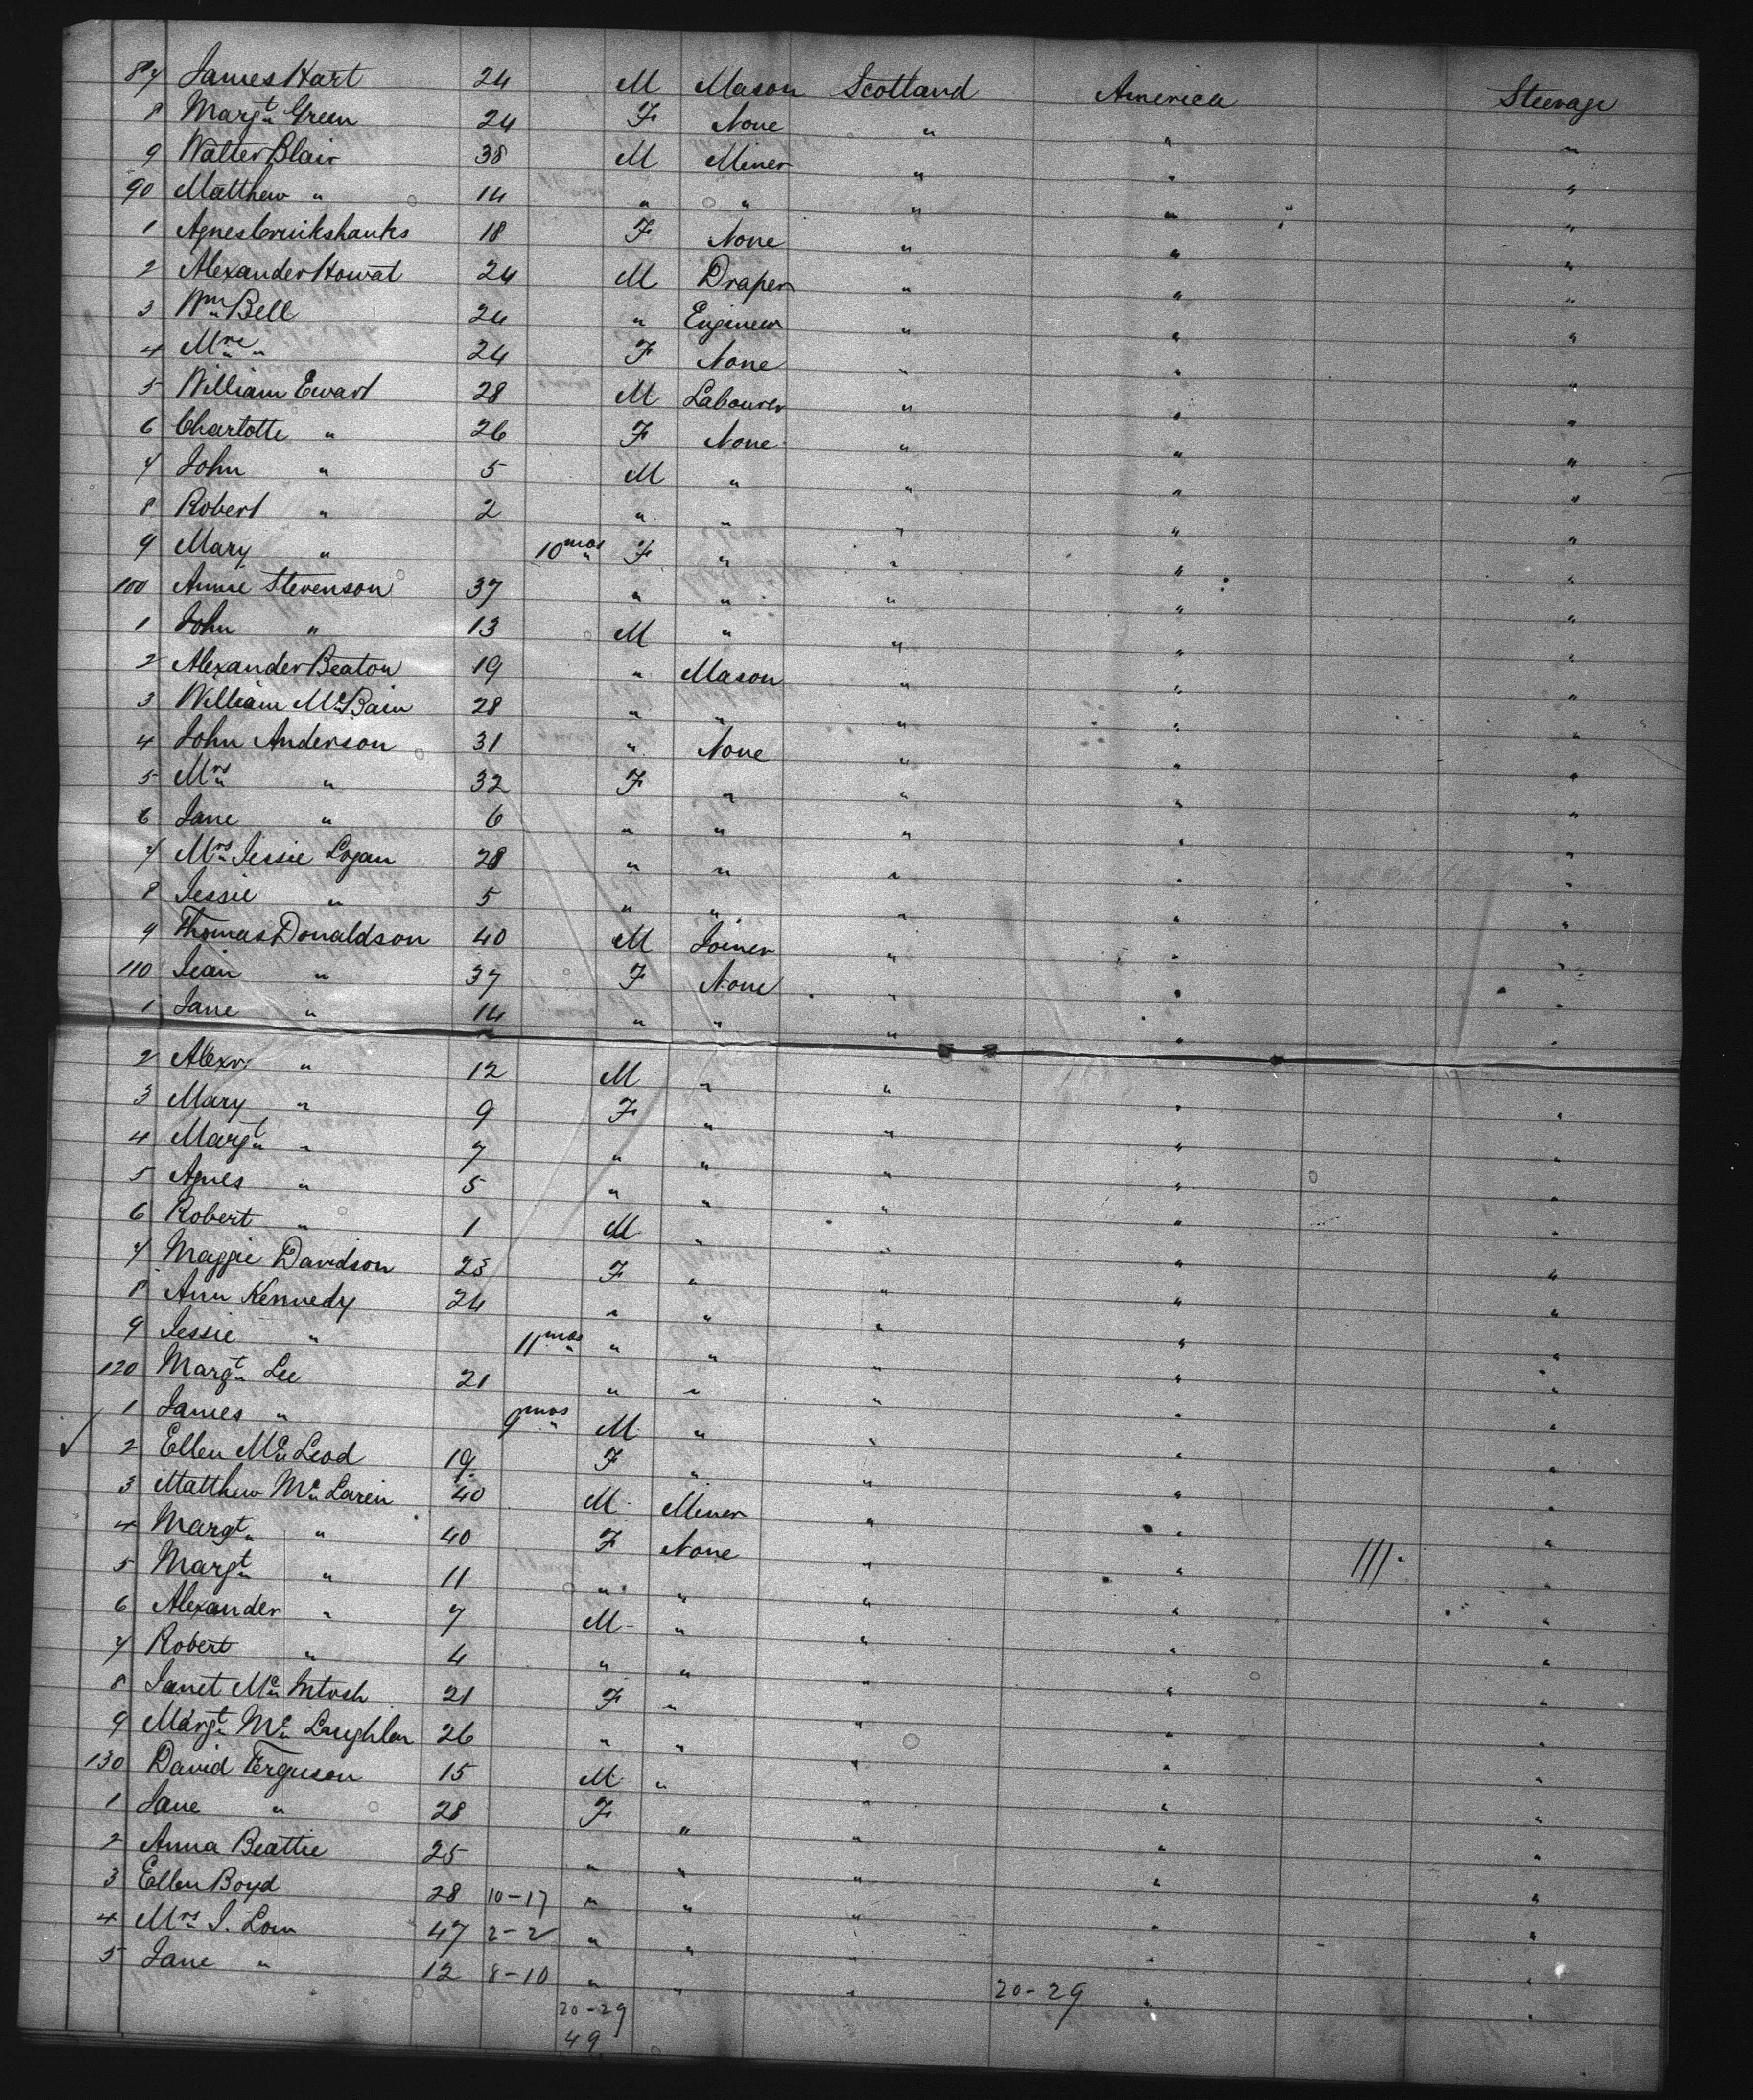 87 James Hart 24 M Mason Scotland America Steerage
8 Margt Green 24 F None " " "
9 Walter Blair 38 M Miner " " "
90 Matthew " 14 " " " " "
1 Agnes Cruikshanks 18 F None " " "
2 Alexander Howat 24 M Draper " " "
3 Wm Bell 24 " Engineer " " "
4 Mrs " 24 F None " " "
5 William Ewart 28 M Labourer " " "
6 Charlotte " 26 F None " " "
7 John " 5 M " " " "
8 Robert " 2 " " " " "
9 Mary " 10 mos F " " " "
100 Annie Stevenson 37 " " " " "
1 John " 13 M " " " "
2 Alexander Beaton 19 " Mason " " "
3 William McBain 28 " " " " "
4 John Anderson 31 " None " " "
5 Mrs " 32 F " " " "
6 Jane " 6 " " " " "
7 Mrs Jessie Logan 28 " " " " "
8 Jessie " 5 " " " " "
9 Thomas Donaldson 40 M Joiner " " "
110 Jean " 37 F None " " "
1 Jane " 14 " " " " "
2 Alexr " 12 M " " " "
3 Mary " 9 F " " " "
4 Margt " 7 " " " " "
5 Agnes " 5 " " " " "
6 Robert " 1 M " " " "
7 Maggie Davidson 23 F " " " "
8 Ann Kennedy 24 " " " " "
9 Jessie " 11 mos " " " " "
120 Margt Lee 21 " " " " "
1 James " 9 mos M " " " "
2 Ellen McLeod 19 F " " " "
3 Matthew McLaren 40 M Miner " " "
4 Margt " 40 F None " " "
5 Margt " 11 " " " " "
6 Alexander " 7 M " " " "
7 Robert " 4 " " " " "
8 Janet McIntosh 21 F " " " "
9 Margt McLaughlan 26 " " " " "
130 David Ferguson 15 M " " " "
1 Jane " 28 F " " " "
2 Anna Beattie 25 " " " " "
3 Ellen Boyd 28 10-17 " " " " "
4 Mrs J. Low 47 2-2 " " " " "
5 Jane " 12 8-10 " " " " "
20-29 20-29
49